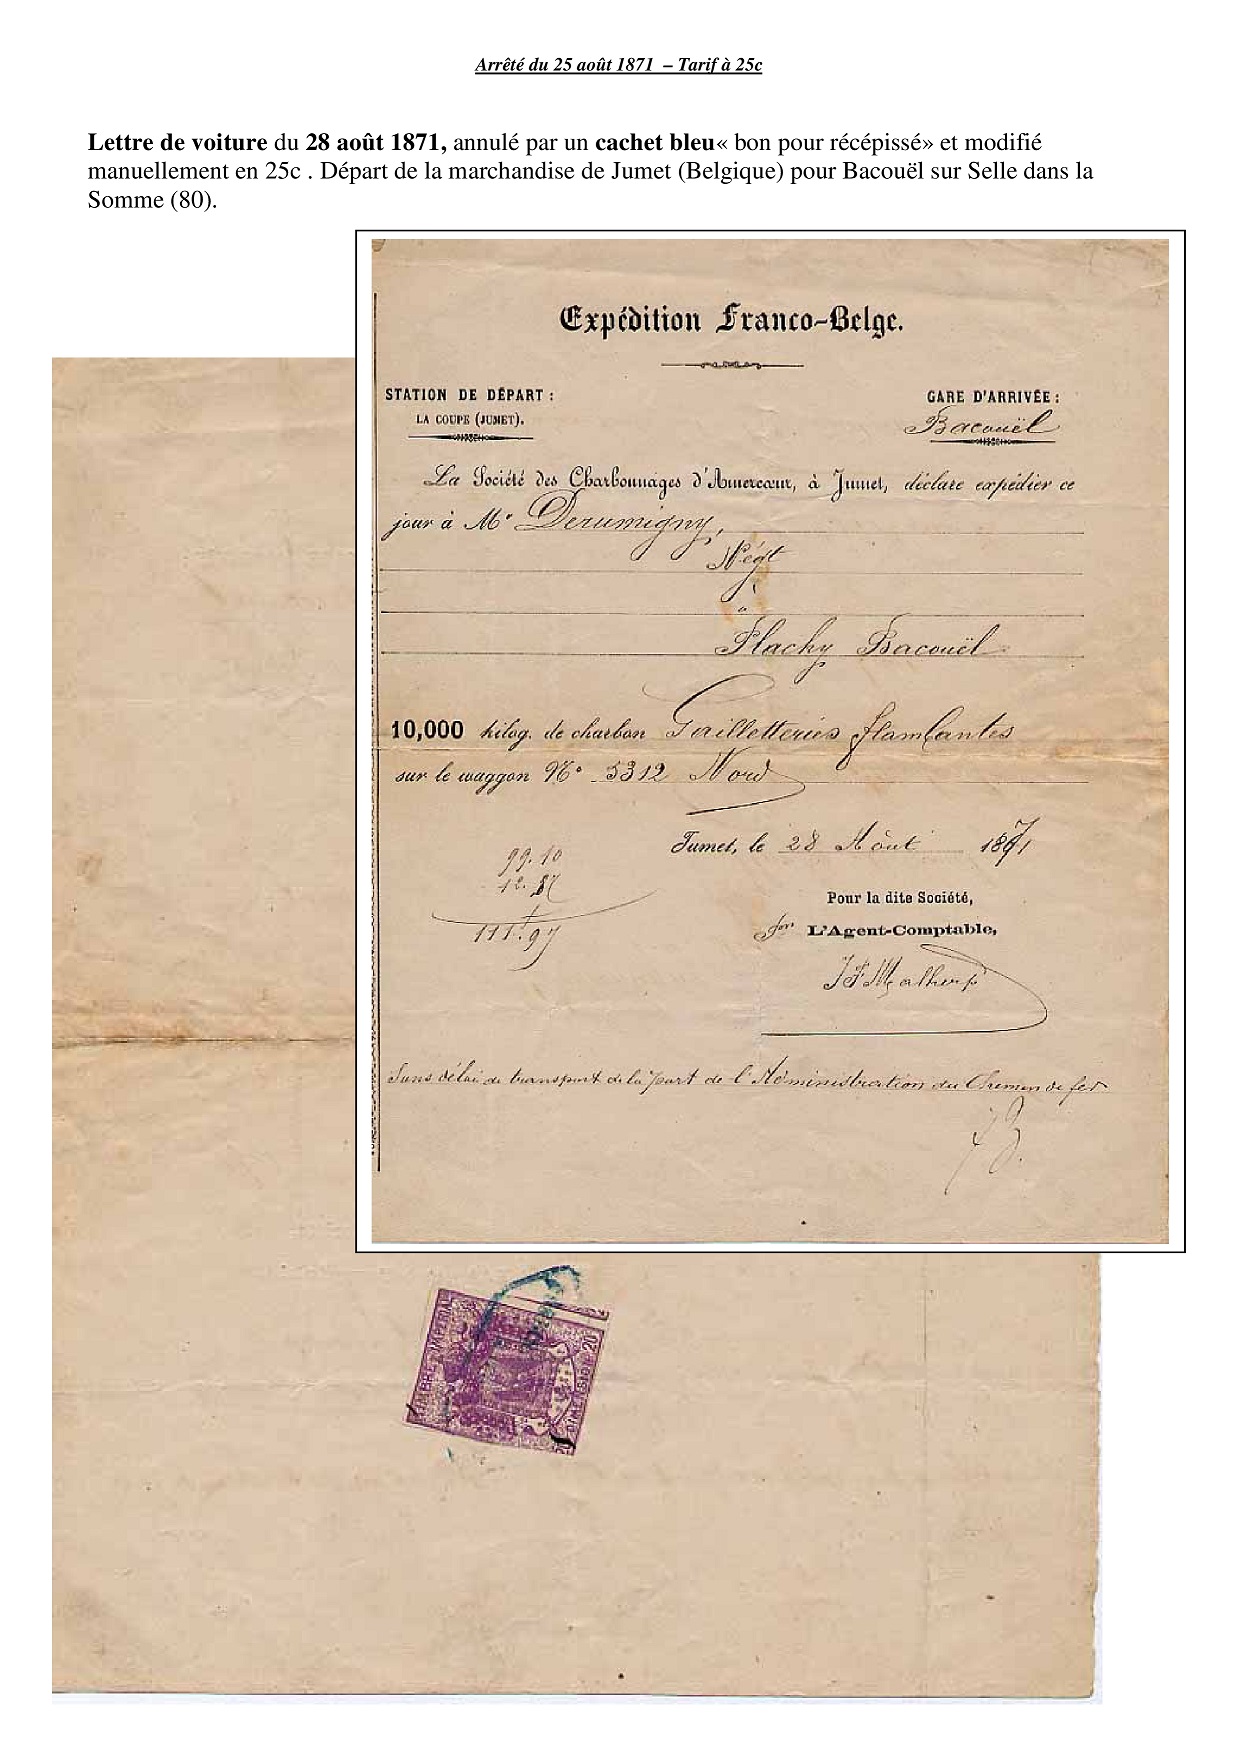 Arrêté du 25 août 1871 – Tarif à 25c
Lettre de voiture du 28 août 1871, annulé par un cachet bleu« bon pour récépissé» et modifié
manuellement en 25c . Départ de la marchandise de Jumet (Belgique) pour Bacouël sur Selle dans la
Somme (80).
Expédition Franco-Belge.
STATION DE DÉPART :
LA COUPE (JUMET).
GARE D'ARRIVÉE :
Bacouël
La Société des Charbonnages d'Amercœur, à Jumet, déclare expédier ce
jour à Mr Derumigny,
Négt
à
Flachy Bacouël
10,000 kilog. de charbon Gailletteries flambantes
sur le waggon No 5312 Nord
Jumet, le 28 Août 1871
99.10
12.87
111.97
Pour la dite Société,
for L'Agent-Comptable,
Sans délai de transport de la part de l'Administration du Chemin de fer
TIMBRE IMPÉRIAL
DIMENSION 20